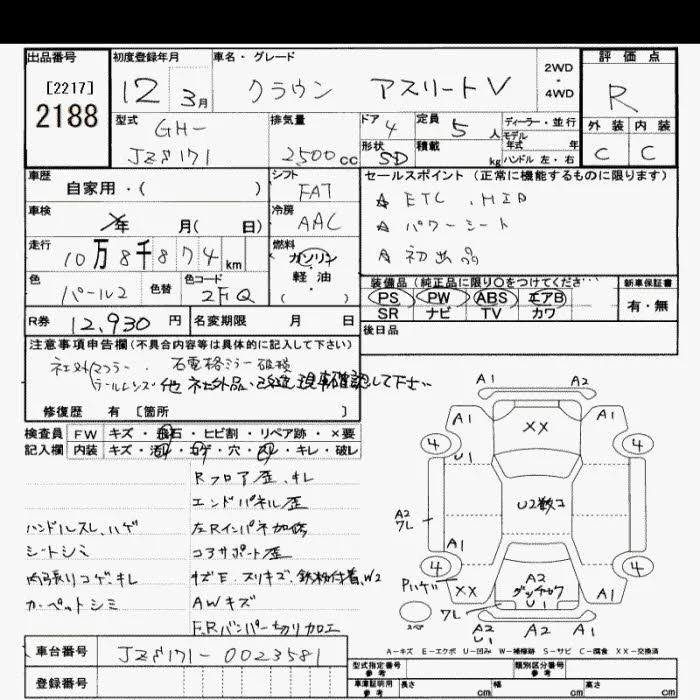 出品番号
[2217]
2188
初度登録年月
12 3月
車名・グレード
クラウン アスリートV
2WD
・
4WD
評価点
R
外装 内装
C C
型式
GH-
JZS171
排気量
2500cc
ドア
4
形状
SD
定員
5人
積載
kg
ディーラー・並行
モデル
年式 年
ハンドル 左・右
車歴
自家用・( )
車検
年 月( 日)
走行
10万8千874km
色
パール2
色替
色コード
2FQ
シフト
FAT
冷房
AAC
燃料
ガソリン
軽・油
( )
セールスポイント(正常に機能するものに限ります)
☆ ETC、HID
☆ パワーシート
☆ 初出品
装備品(純正品に限り〇をつけてくださ
PS PW ABS エアB
SR ナビ TV カワ
新車保証書
有・無
R券 12,930円
名変期限 月 日
後日品
注意事項申告欄(不具合内容等は具体的に記入して下さい)
社外マフラー、右電格ミラー破損
テールレンズ・他 社外品・改造 現車確認して下さい
修復歴 有 [箇所 ]
検査員 FW キズ・飛石・ヒビ割・リペア跡・×要
記入欄 内装 キズ・汚れ・コゲ・穴・スレ・キレ・破レ
Rフロア歪、キレ
エンドパネル歪
ハンドルスレ、ハゲ
左Rインパネ加修
シートシミ
コアサポート歪
内張りコゲ、キレ
キズE、スリキズ、鉄粉付着、W2
カーペットシミ
AWキズ
F,Rバンパー切り加工
A1 A2
A1 XX A1
4 4
U1
U2数コ
A2
フレ
A1
4 4
Pハゲ
XX
A2
U1
A1
フレ
スペ
A2 A2 A2
U1
A-キズ E-エクボ U-凹み W-補修跡 S-サビ C-腐食 XX-交換済
車台番号 JZS171-0023581
登録番号
型式指定番号
参考
類別区分番号
参考
車庫証明用
参考
長さ cm 幅 cm 高さ cm